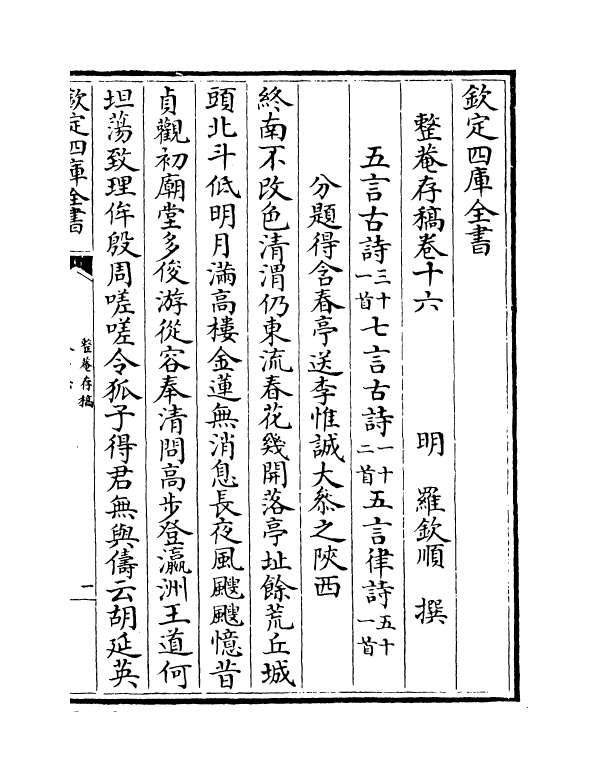 欽定四庫全書
整菴存稿卷十六
明 羅欽順 撰
五言古詩三十一首七言古詩一十二首五言律詩五十一首
分題得含春亭送李惟誠大叅之陜西
終南不改色清渭仍東流春花幾開落亭址餘荒丘城
頭北斗低明月滿高樓金蓮無消息長夜風颼颼憶昔
貞觀初廟堂多俊游從容奉清問高步登瀛洲王道何
坦蕩致理侔殷周嗟嗟令狐子得君無與儔云胡延英
欽定四庫全書
整菴存稿
一